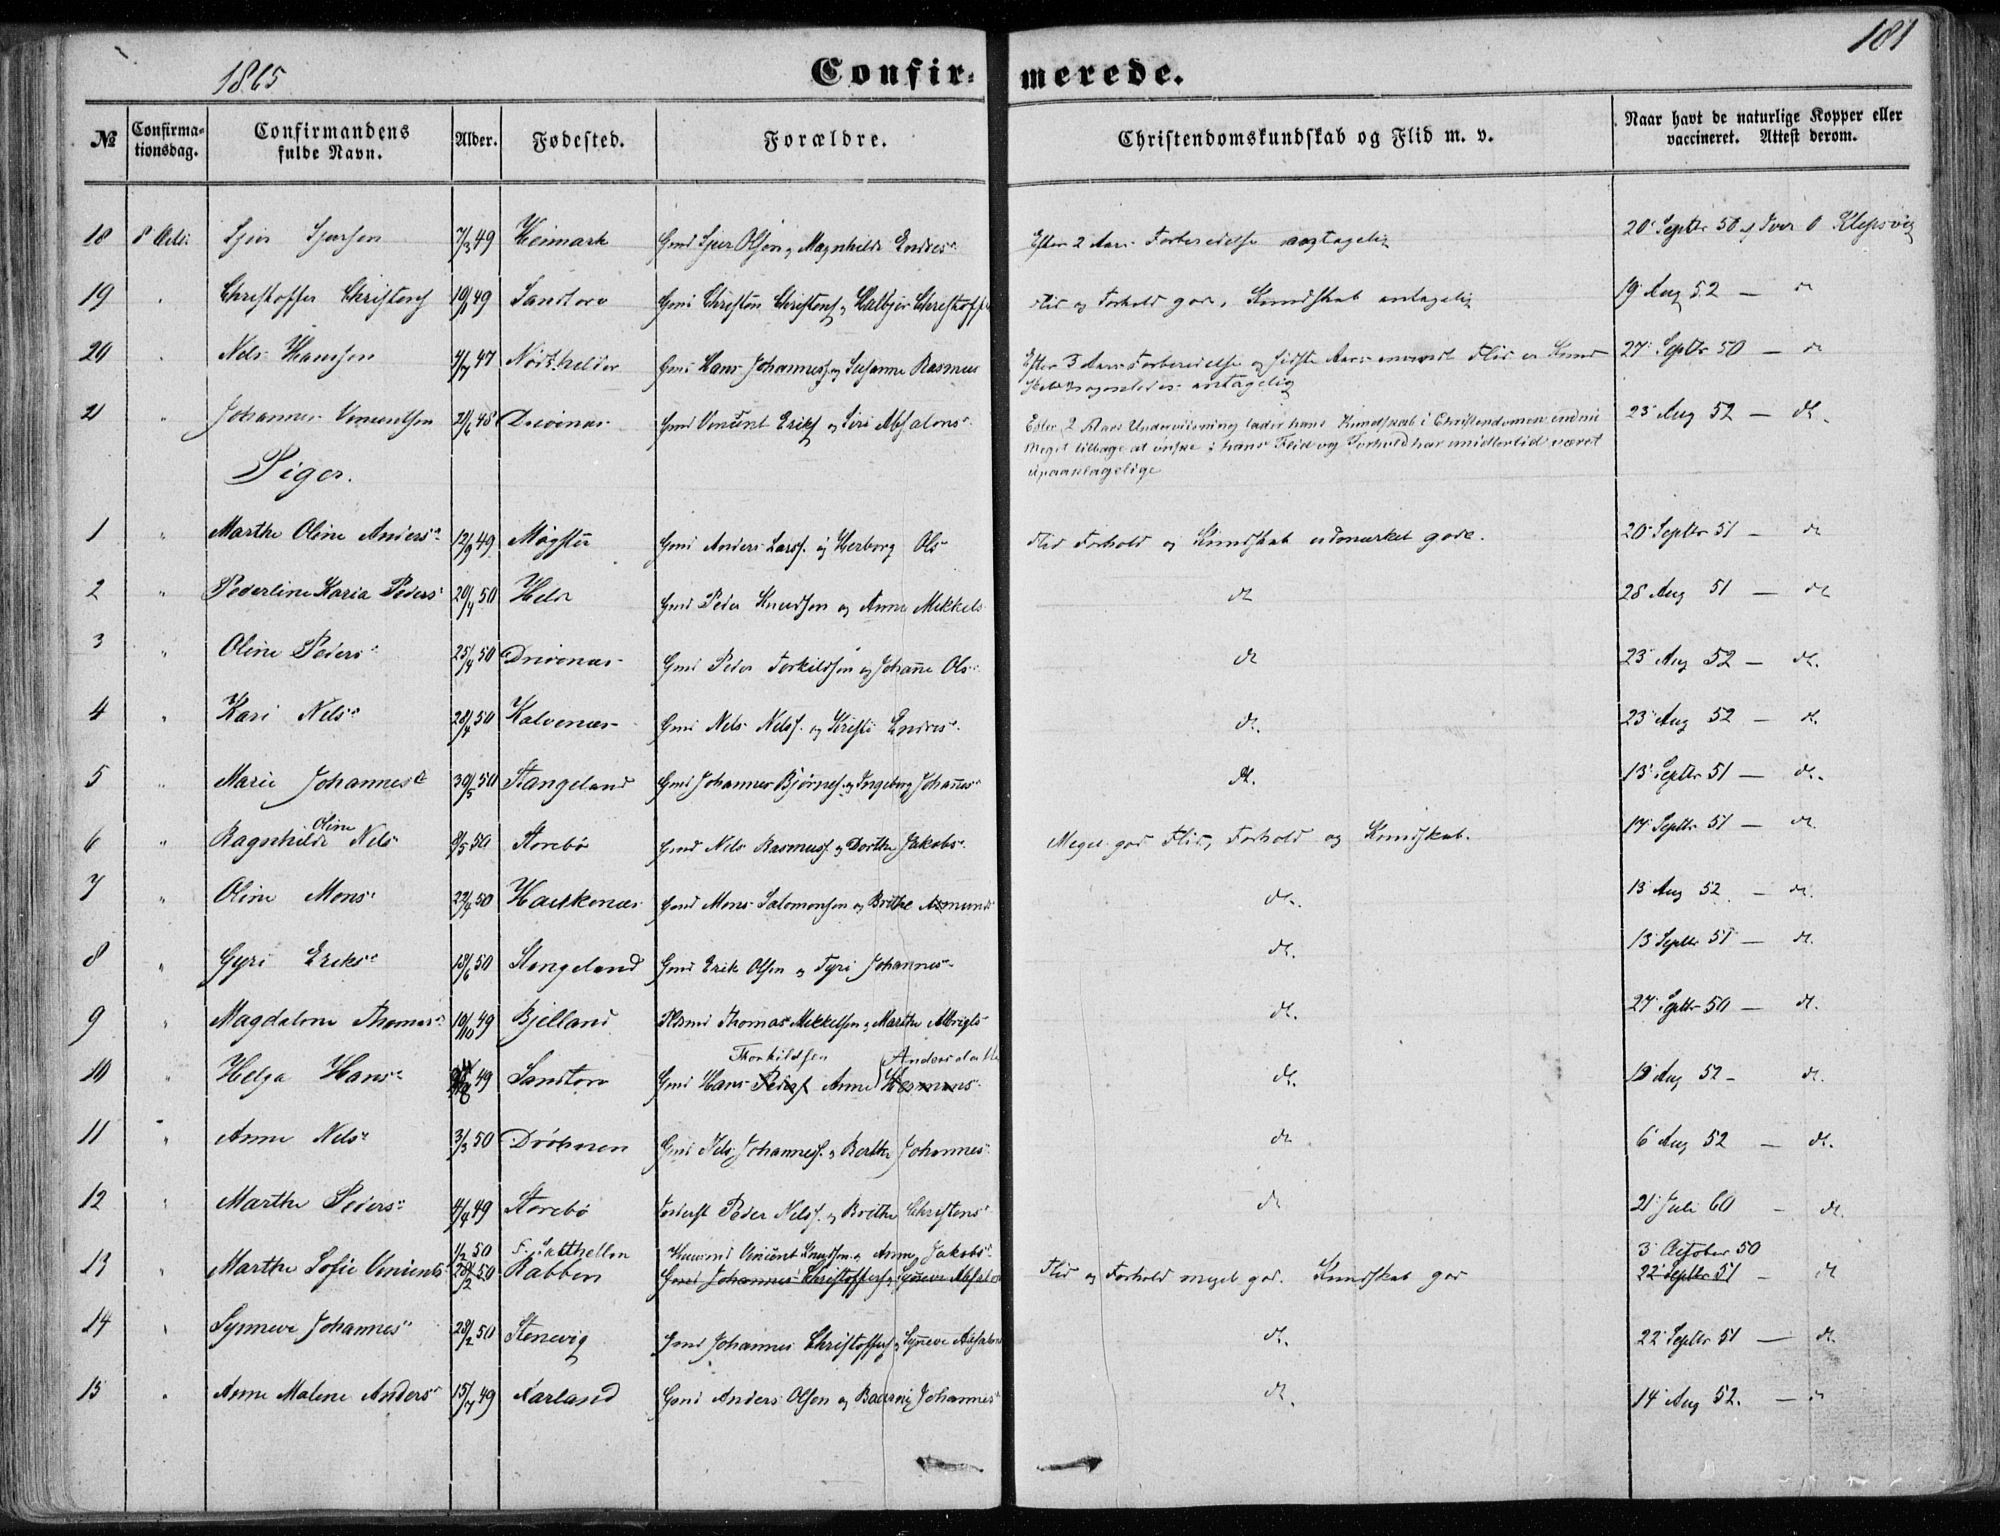 181
1865 Confir- merede.
№ Confirma-tionsdag. Confirmandens fulde Navn. Alder. Fødested. Forældre. Christendomskundskab og Flid m. v. Naar havt de naturlige Kopper eller vaccineret. Attest derom.
18 8 Octb. Sjur Sjursen 7/3 49 Heimark Gmd Sjur Olsen og Magnhilde Endres Efter 2 Aars Forberedelse antagelig 20 Septbr 50 af Iver O Klepsvig
19 Christoffer Christens 49 Sandtorv Gmd Christen Christens og Christoff Flid og Forhold god, Kundskab antagelig 19 Aug 52 — d
20 Nels Hansen 4/7 47 Gmd Hans Johanness. og Susanne Rasmus Efter 3 Aars Forberedelse og sidste Aars Flid er Kund
antagelig 27 Septbr 50 — d
21 " Johannes Vincentsen 21/6 48 Drivenæs Gmd Vincent Eriks og Siri Absalons Efter 2 Aars Underviisning lader hans Kundskab i Christendommen endnu 23 Aug 52 — dt.
Meget tilbage at önske; hans Flid og Forhold har imidlertid været
upaaklagelige
Piger.
1 " Marthe Oline Anders 12/9 49 Møgster Gmd Anders Larss. og Herborg Ols Flid Forhold og Kundskab udmærket gode. 20 Septbr 51 — d
2 " Pederline Karia Peders 20/4 50 Gmd Peder Knudsen og Anne Mikkels dt 28 Aug 51 — dt
3 " Oline Peders 25/4 50 Drivenæs Gmd Peder Torkildsen og Johañe Ols dt 23 Aug 52 — dt.
4 " Kari Nels 28/4 50 Kalvenæs Gmd Nels Nelss. og Kristi Endres dt. 23 Aug 52 — dt.
5 " Marie Johannesd 30/5 50 Stangeland Gmd Johannes Bjørnes. og Ingeborg Johañes dt. 13 Septbr 51 — dt.
6 " Ragnhilde Oline Nels 8/5 50 Storebø Gmd Nels Rasmuss. og Dorthe Jakobs Meget god Flid, Forhold og Kundskab. 17 Septbr 51 — dt.
7 " Oline Mons 22/4 50 Haukenæs Gmd Mons Salomonsen og Brithe Asmunds dt. 13 Aug 52 — dt.
8 " Gyri Eriks 18/6 50 Stangeland Gmd Erik Olsen og Gyri Johannes dt. 13 Septbr 51 — dt.
9 " Magdalena Thomas 10/10 49 Bjelland Thomas Mikkelsen og Marthe Albrigts dt. 27 Septbr 50 — dt.
10 " Helga Hans 49 Sandtorv Gmd Hans Peders Thorkildsen Anne Andersdatter dt. 13 Aug 52 — dt.
11 " Anne Nels 3/3 50 Gmd Nels Johanness. og Berthe Johannes dt 6 Aug 52 — dt.
12 " Marthe Peders 4/4 49 Storebø Peder Nelss. og Brithe Christens dt 21 Juli 60 — dt.
1/2 50 Vincent Knudsen og Anne Jakobs 3 October 50
13 " Marthe Sofie Vincents 28/2 50 Rabben Gmd Johannes Christoffers og Syñeve Absalon Flid og Forhold meget god. Kundskab god 22 Septbr 51 — dt
14 " Synneve Johannes 28/2 50 Stenevig Gmd Johannes Christoffers og Syñeve Absalons dt. 22 Septbr 51 — dt.
15 " Anne Malene Anders 15/7 49 Aarland Gmd Anders Olsen og Johannes dt. 14 Aug 52. — d